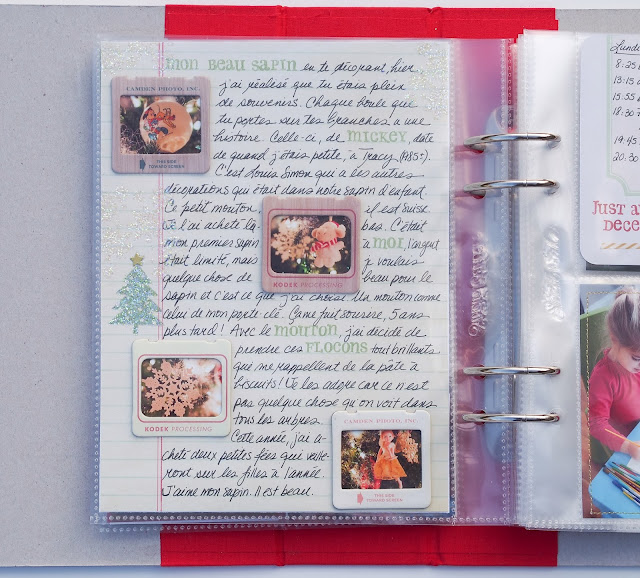 mon beau sapin en te décorant, hier,
j'ai réalisé que tu étais plein
de souvenirs. Chaque boule que
tu portes sur tes branches a une
histoire. Celle-ci, de MICKEY, date
de quand j'étais petite, à Tracy (1985?).
C'est Louis Simon qui a les autres
décorations qui était dans notre sapin d'enfant.
Ce petit mouton, il est suisse.
Je l'ai acheté là-bas. C'était
mon premier sapin à MOI, l'argent
était limité, mais je voulais
quelque chose de beau pour le
sapin et c'est ce que j'ai choisi. Un mouton comme
celui de mon porte-clé. Ça me fait sourire, 5 ans
plus tard! Avec le mouton, j'ai décidé de
prendre ces FLOCONS tout brillants
que me rappellent de la pâte à
biscuits! Je les adore car ce n'est
pas quelque chose qu'on voit dans
tous les arbres.
Cette année, j'ai a-
cheté deux petites fées qui veille-
ront sur les filles à l'année.
J'aime mon sapin. Il est beau.
CAMDEN PHOTO, INC.
THIS SIDE
TOWARD SCREEN
KODEK PROCESSING
KODEK PROCESSING
CAMDEN PHOTO, INC.
THIS SIDE
TOWARD SCREEN
Lunde
8:25
13:15
15:55
18:30
19:45
20:30
JUST A
DECE